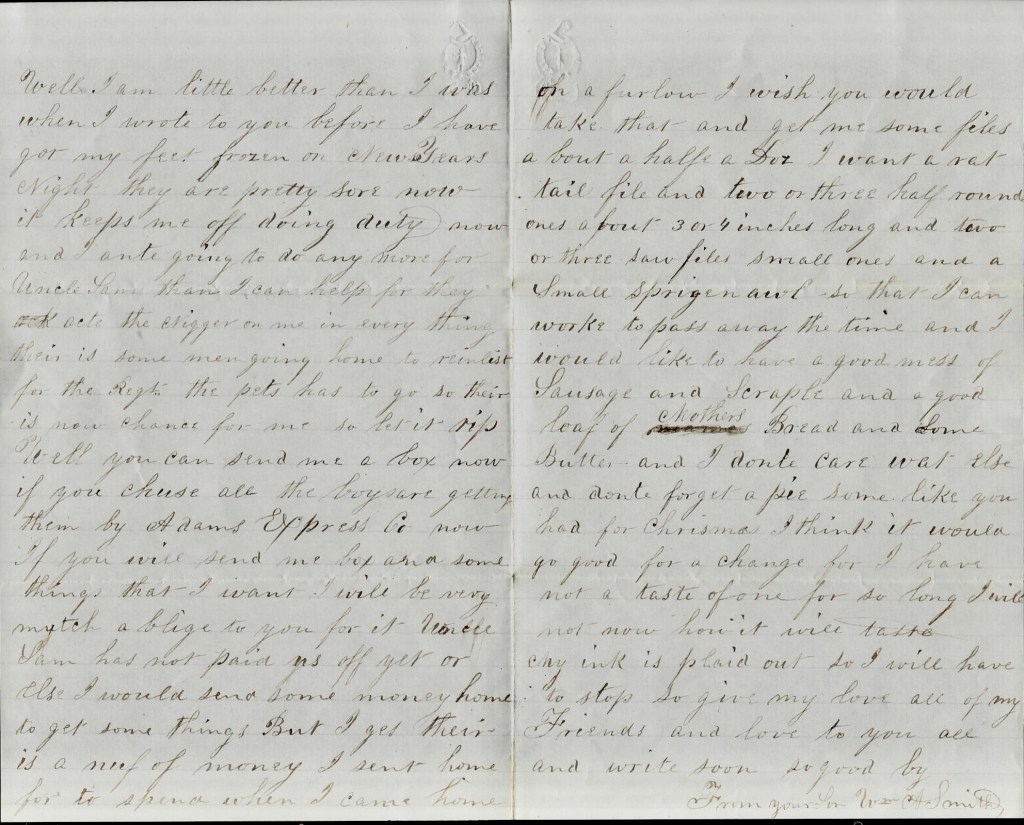 Well I am little better than I was
when I wrote to you before I have
got my feet frozen on New Years
Night they are pretty sore now
it keeps me off doing duty now
and I ante going to do any more for
Uncle Sam than I can help for they
acts the Nigger on me in every thing
their is some men going home to reinlist
for the Regt. the pets has to go so their
is now chance for me so let it rip
Well you can send me a box now
if you chuse all the boys are getting
them by Adams Express Co now
If you will send me box and some
things that I want I will be very
mutch a blige to you for it Uncle
Sam has not paid us off yet or
Else I would send some money home
to get some things But I ges their
is a nuf of money I sent home
for to spend when I came home
on a furlow I wish you would
take that and get me some files
a bout a halfe a Doz I want a rat
tail file and two or three half round
ones about 3 or 4 inches long and two
or three saw files small ones and a
Small sprigen awl so that I can
worke to pass away the time and I
would like to have a good mess of
Sausage and Scraple and a good
loaf of Mothers Bread and Some
Butter and I donte care wat Else
and donte forget a pie some like you
had for Chrismas I think it would
go good for a change for I have
not a taste of one for so long I will
not now how it will taste
My ink is plaid out so I will have
to stop so give my love all of my
Friends and love to you all
and write soon so good by
From your Son Wm A Smith